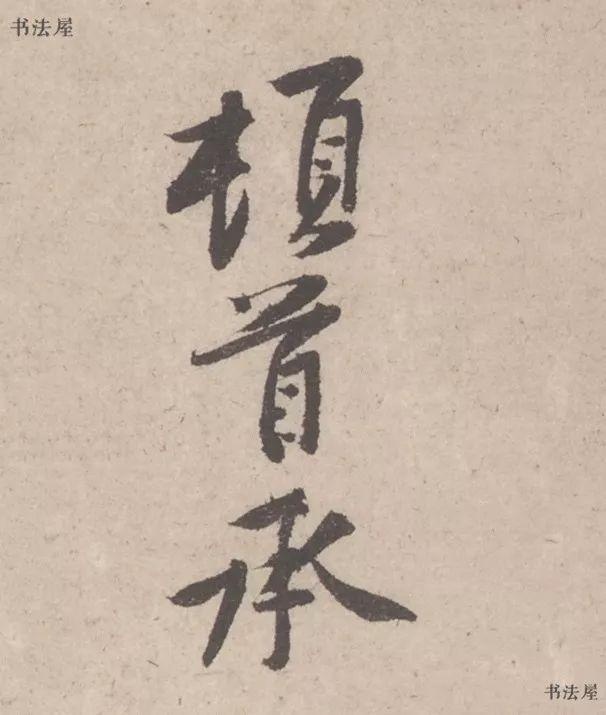 书法屋
頓首承
书法屋